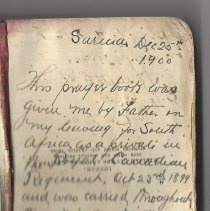 Sarnia Dec 25th
1900
This prayer book was
given me by Father on
my leaving for South
Africa as a private in
the Royal Canadian
Regiment, Oct 23rd 1899
and was carried throughout